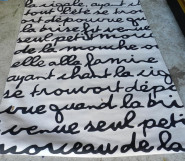 la cigale, ayant ch
tout l'été se tro
t dépourvue qu
la brise fut venue
seul petit morc
de la mouche ou
elle alla famine
ayant chant la cig
se trouvait dépo
vue quand la bri
venue seul peti
morceau de la